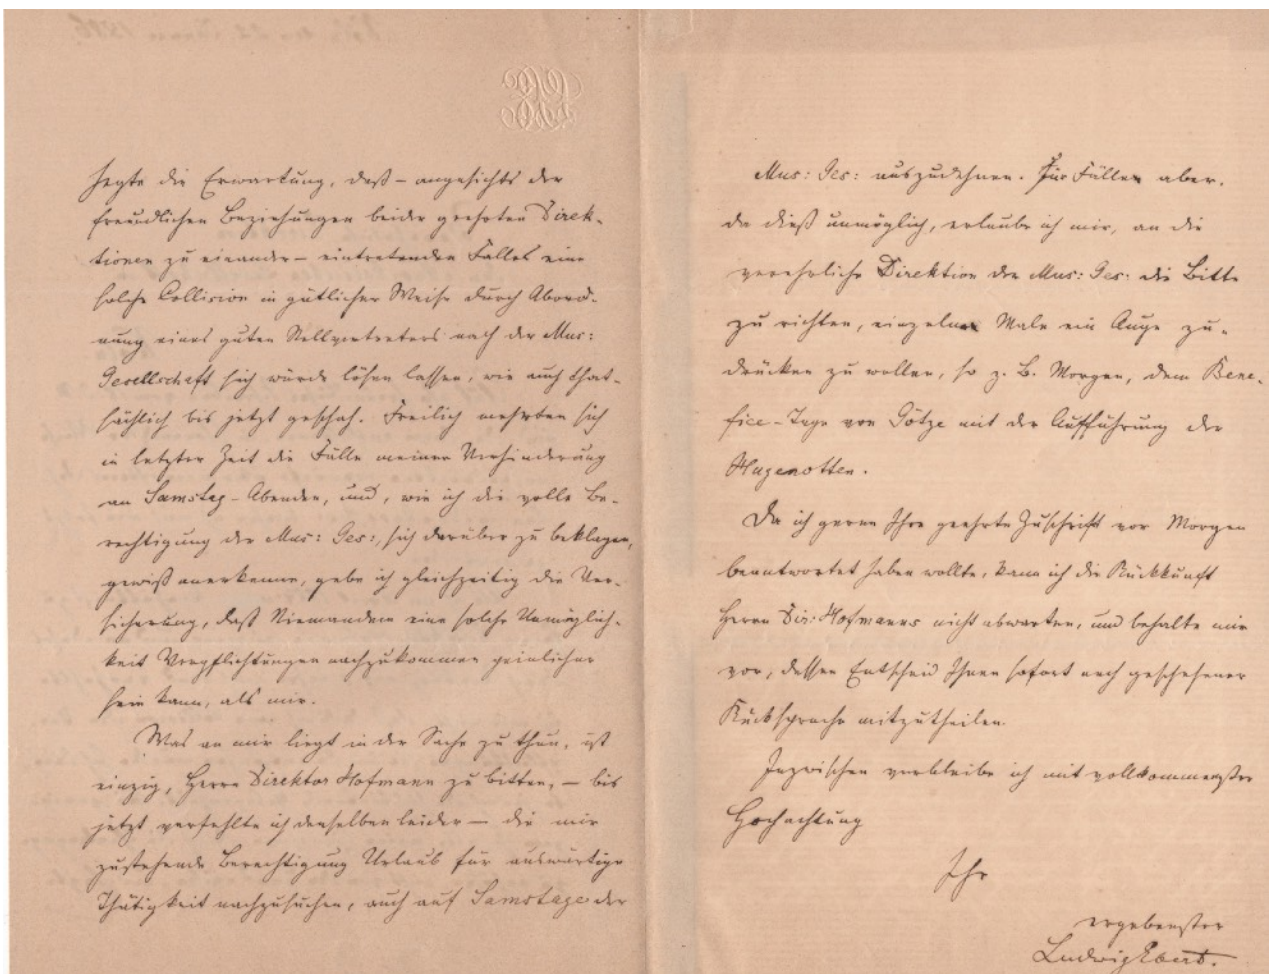 hegte die Erwartung, daß – angesichts der
freundlichen Beziehungen beider geehrten Direk-
tionen zu einander – eintretenden Falles eine
solche Collision in gütlicher Weise durch Abord-
nung eines guten Stellvertreters nach der Mus:
Gesellschaft sich würde lösen lassen, wie auch that-
sächlich bis jetzt geschah. Freilich mehrten sich
in letzter Zeit die Fälle meiner Verhinderung
an Samstag-Abenden, und, wie ich die volle Be-
rechtigung der Mus: Ges:, sich darüber zu beklagen,
gewiß anerkenne, gebe ich gleichzeitig die Ver-
sicherung, daß Niemandem eine solche Unmöglich-
keit Verpflichtungen nachzukommen peinlicher
sein kann, als mir.
Was an mir liegt in der Sache zu thun, ist
einzig, Herrn Direktor Hofmann zu bitten, – bis
jetzt verfehlte ich denselben leider – die mir
zustehende Berechtigung Urlaub für auswärtige
Thätigkeit nachzusuchen, auch auf Samstage der
Mus: Ges: auszudehnen. Für Fälle aber,
da dieß unmöglich, erlaube ich mir, an die
verehrliche Direktion der Mus: Ges: die Bitte
zu richten, einzelne Male ein Auge zu-
drücken zu wollen, so z. B. Morgen, dem Bene-
fice-Tage von Götze mit der Aufführung der
Hugenotten.
Da ich gerne Ihre geehrte Zuschrift vor Morgen
beantwortet haben wollte, kann ich die Rückkunft
Herrn Dir: Hofmanns nicht abwarten, und behalte mir
vor, dessen Entscheid Ihnen sofort nach geschehener
Rücksprache mitzutheilen.
Inzwischen verbleibe ich mit vollkommenster
Hochachtung
Ihr
ergebenster
Ludwig Ebert.